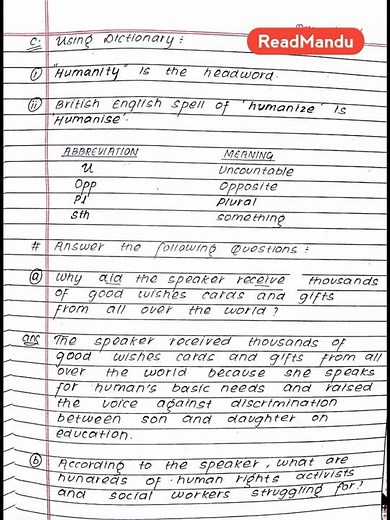 ReadMandu
C. Using Dictionary :
(i) "Humanity" is the headword.
(ii) British English spell of 'humanize' is
'Humanise'.
ABBREVIATION MEANING
U Uncountable
Opp Opposite
Pl Plural
Sth something
# Answer the following Questions :
(a) Why did the speaker receive thousands
of good wishes cards and gifts
from all over the world ?
ans The speaker received thousands of
good wishes cards and gifts from all
over the world because she speaks
for human's basic needs and raised
the voice against discrimination
between son and daughter on
education.
(b) According to the speaker, what are
hundreds of human rights activists
and social workers struggling for ?